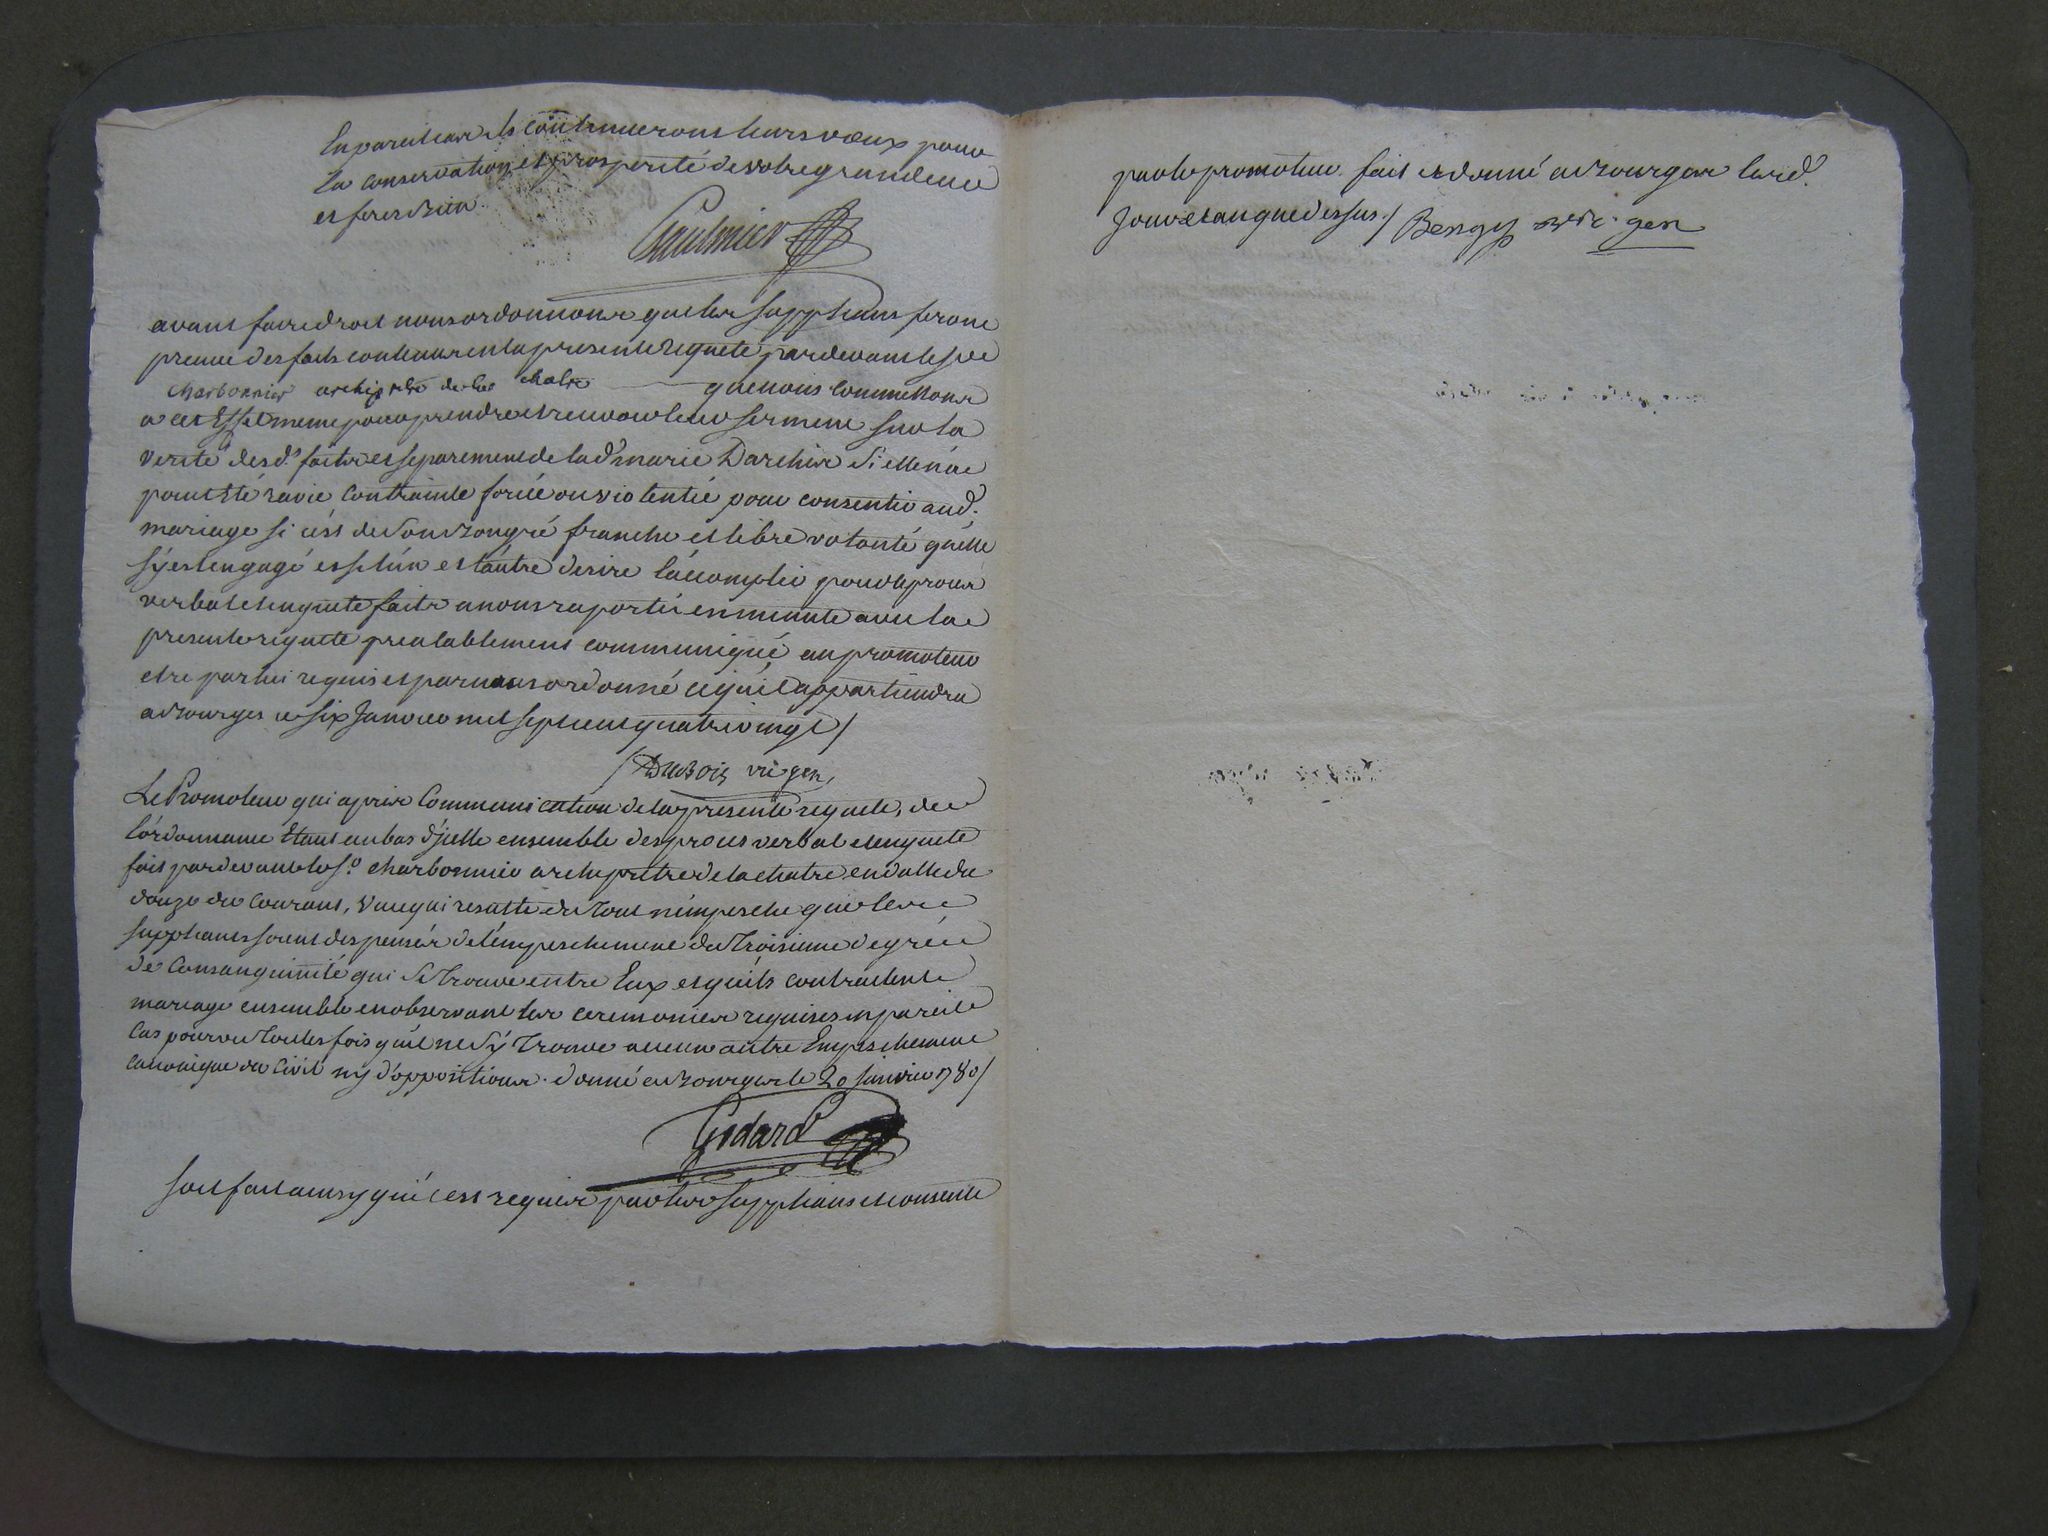 En pareil cas ils continueront leurs vœux pour
La conservation et prosperité de votre grandeur
et feres bien
Gaulmier
avant faire droit nous ordonnons que les supplians feront
preuve des faits contenus en la presente requete pardevant le sr
charbonnier archiptre de la chatre que nous commettons
a cet Effet meme pour prendre et recevoir leur serment sur la
verité desd. faits et separement de lad. marie Darchis si elle n'a
point été ravie contrainte forcée ou violentée pour consentir aud.
mariage si c'ést de son bon gré franche et libre volonté qu'elle
s'y est engagé et si l'ún et l'áutre desire l'áccomplir pour le procès
verbal et enquete faits a nous raportés en minute avec la
presente requete prealablement communiqué au promoteur
etre par lui requis et par nous ordonné ce qu'il appartiendra
a Bourges ce six Janvier mil sept cent quatre vingt /
/ Dubois vic gen,
Le Promoteur qui a pris Communication de la presente requete, de
l'órdonnance Etant au bas d'jcelle ensemble des procès verbal et enquete
fait pardevant le sr. charbonnier archiprêtre de la chatre en datte du
douze du Courant, Vu ce qui resulte du tout n'émpesche que les
supplians soient dispensés de l'émpeschement du troisieme degrée
de Consanguinité qui se trouve entre Eux et qu'ils contractent
mariage ensemble en observant les ceremonies requises en pareil
Cas pourvu toutesfois qu'il ne s'y trouve aucun autre Empeschement
canonique ou Civil ny d'oppositions. donné a Bourges le 20 janvier 1780 /
Godard
soit fait ainsy qu'il est requis par les supplians et consenti
par le promoteur. fait et donné a Bourges lesd.
jour et an que dessus. / Bengy vic. gen